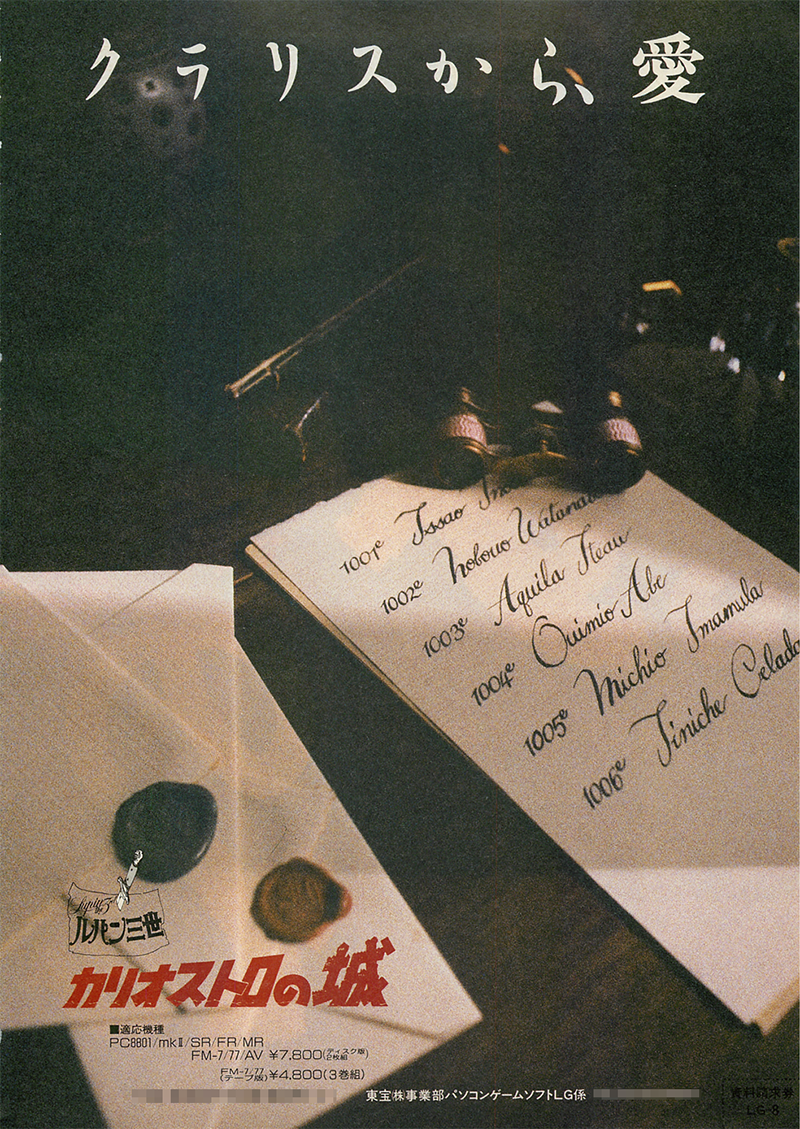 クラリスから、愛
1001e Issao
1002e Nobouo Watanabe
1003e Aquila Iteau
1004e Quimio Abe
1005e Michio Imamula
1006e Tiniche Celada
ルパン三世
カリオストロの城
■適応機種
PC8801/mkⅡ/SR/FR/MR
FM-7/77/AV ¥7,800(ディスク版2枚組)
FM-7/77(テープ版)¥4,800(3巻組)
東宝㈱事業部パソコンゲームソフトLG係
資料請求券
LG-8